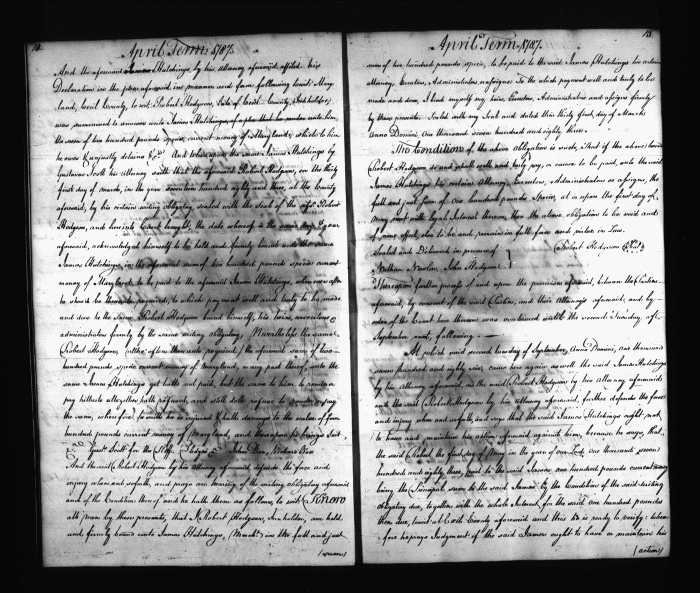 12.
April Term, 1787.
And the aforesaid James Hutchings, by his Attorney aforesaid, affiled his
Declaration in the plea aforesaid in manner and form following towit: Mary-
land, Cecil County, to wit: Robert Hodgson, late of Cecil County, Innholder,
was summoned to answer unto James Hutchings, of a plea that he render unto him,
the sum of two hundred pounds specie current money of Maryland, which to him
he owes & unjustly detains &c. And whereupon the same James Hutchings by
Gustavus Scott his Attorney saith that the aforesaid Robert Hodgson, on the thirty
first day of march, in the year seventeen hundred and eighty and three, at the County
aforesaid, by his certain writing obligatory sealed with the seal of the afsd. Robert
Hodgson, and here in Court brought, the date whereof is the same day & year
aforesaid, acknowledged himself to be held and firmly bound unto the same
James Hutchings, in the aforesaid sum of two hundred pounds specie current
money of Maryland, to be paid to the aforesaid James Hutchings, when ever after
he should be thereto required, to which payment well and truly to be made
and due to the same, Robert Hodgson bound himself, his heirs, executors
administrators firmly by the same writing obligatory; Nevertheless the same
Robert Hodgson, altho' often thereunto required, the aforesaid sum of two
hundred pounds specie current money of Maryland, or any part thereof, unto the
same James Hutchings not hath not paid, but the same to him to render or
pay hitherto altogether hath refused, and still doth refuse to render or pay
the same, wherefore he saith he is injured & hath damage to the value of four
hundred pounds current money of Maryland, and thereupon he brings Suit.
Gusts. Scott for the Plff. Pledges &c. John Doe, Richard Roe
And the said Robert Hodgson by his Attorney aforesaid, defends the force and
injury when and so forth, and prays an hearing of the writing obligatory aforesaid
and of the Condition thereof and he hath them as follows, to wit, Know
all men by these presents, that I, Robert Hodgson, Innholder, am held
and firmly bound unto James Hutchings, (Mercht.) in the full and just
(sum)
13.
April Term, 1787.
sum of two hundred pounds, specie, to be paid to the said James Hutchings his certain
Attorney, Executors, Administrators or assigns: To the which payment well and truly to be
made and done, I bind myself my heirs, Executors, Administrators and assigns firmly
by these presents. Sealed with my Seal and dated this thirty first day of March
Anno Domini one thousand seven hundred and eighty three.
The Condition of the above obligation is such, That if the above bound
Robert Hodgson do and shall well and truly pay, or cause to be paid, unto the said
James Hutchings his certain Attorney, Executors, Administrators or assigns, the
full and just sum of one hundred pounds Specie, at or upon the first day of
May next with legal Interest thereon, then the above obligation to be void and
of none effect, else to be and remain in full force and virtue in Law.
Sealed and Delivered in presence of
Robert Hodgson (Seal)
Nathan Norton, John Hodgson
Whereupon further process of and upon the premises aforesaid, between the Parties
aforesaid, by consent of the said Parties, and their Attorneys aforesaid, and by
order of the Court here thereon was continued until the second Tuesday of
September next, following.
At which said second tuesday of September, Anno Domini, one thousand
seven hundred and eighty six, came here again as well the said James Hutchings
by his Attorney aforesaid, as the said Robert Hodgson by his Attorney aforesaid
and the said Robert Hodgson by his Attorney aforesaid, further defends the force
and injury when and so forth, and says that the said James Hutchings ought not
to have and maintain his action aforesaid against him, because he says, that
the said Robert the first day of May in the year of our Lord one thousand seven
hundred and eighty three, paid to the said James one hundred pounds current money
being the Principal sum to the said James by the Condition of the said writing
obligatory due, together with the whole Interest, for the said one hundred pounds
then due, to wit at Cecil County aforesaid and this he is ready to verify; where-
fore he prays Judgment if the said James ought to have or maintain his
(action)